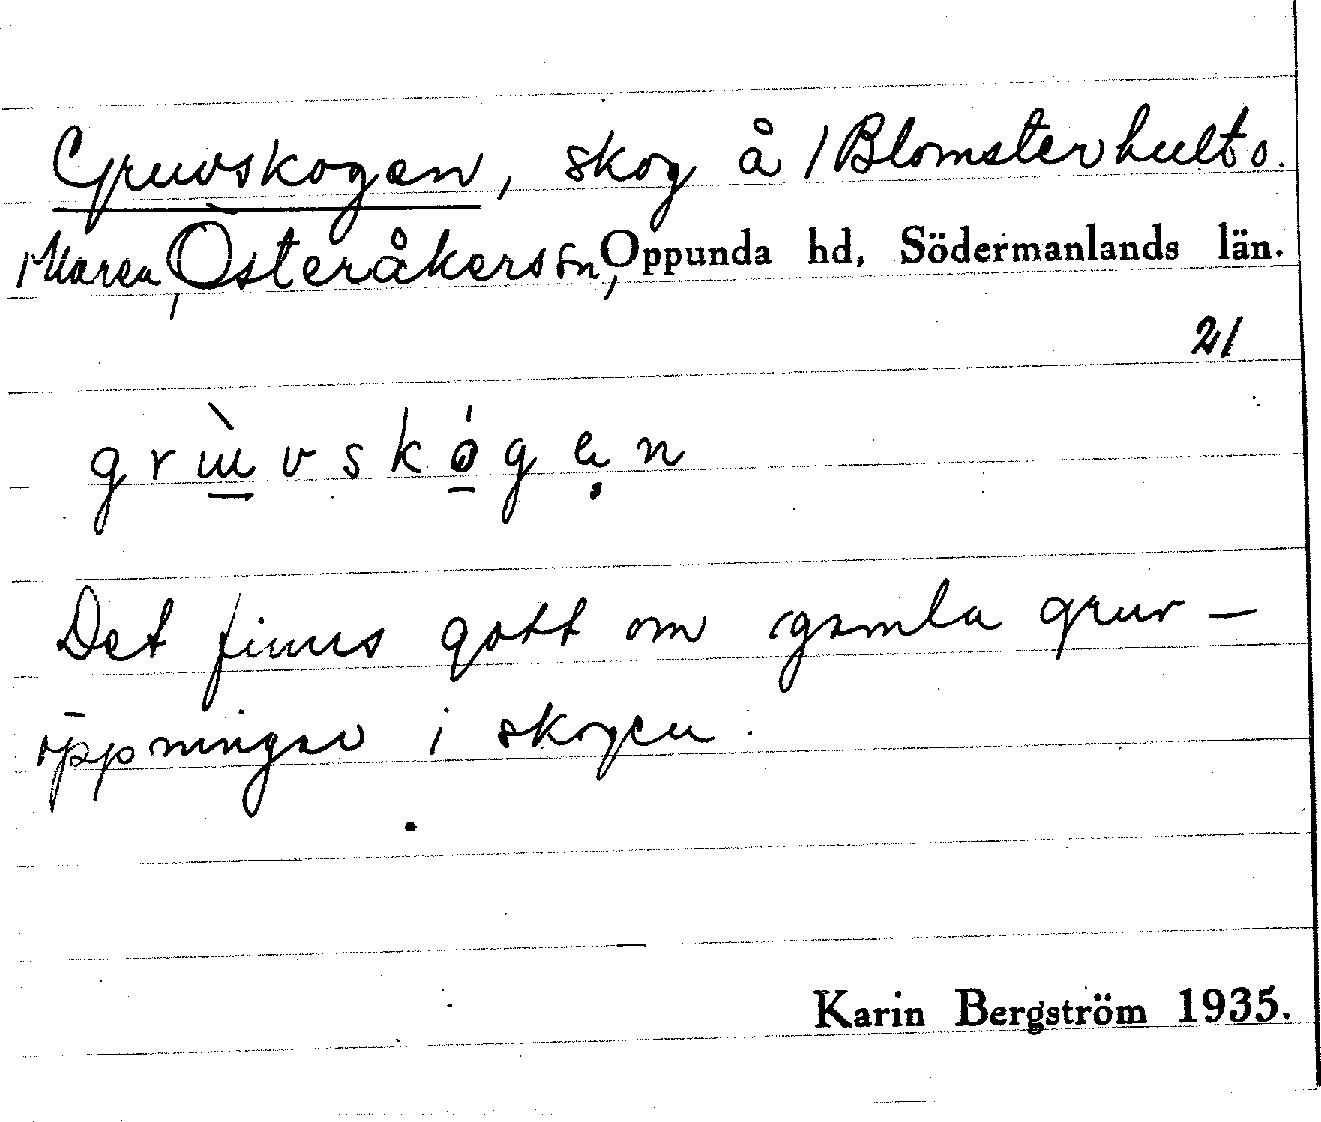 Gruvskogen, skog å 1 Blomsterhult o.
1 Maren, Österåkers sn, Oppunda hd, Södermanlands län.
21
grùvskógen
Det finns gott om gamla gruv-
öppningar i skogen.
Karin Bergström 1935.